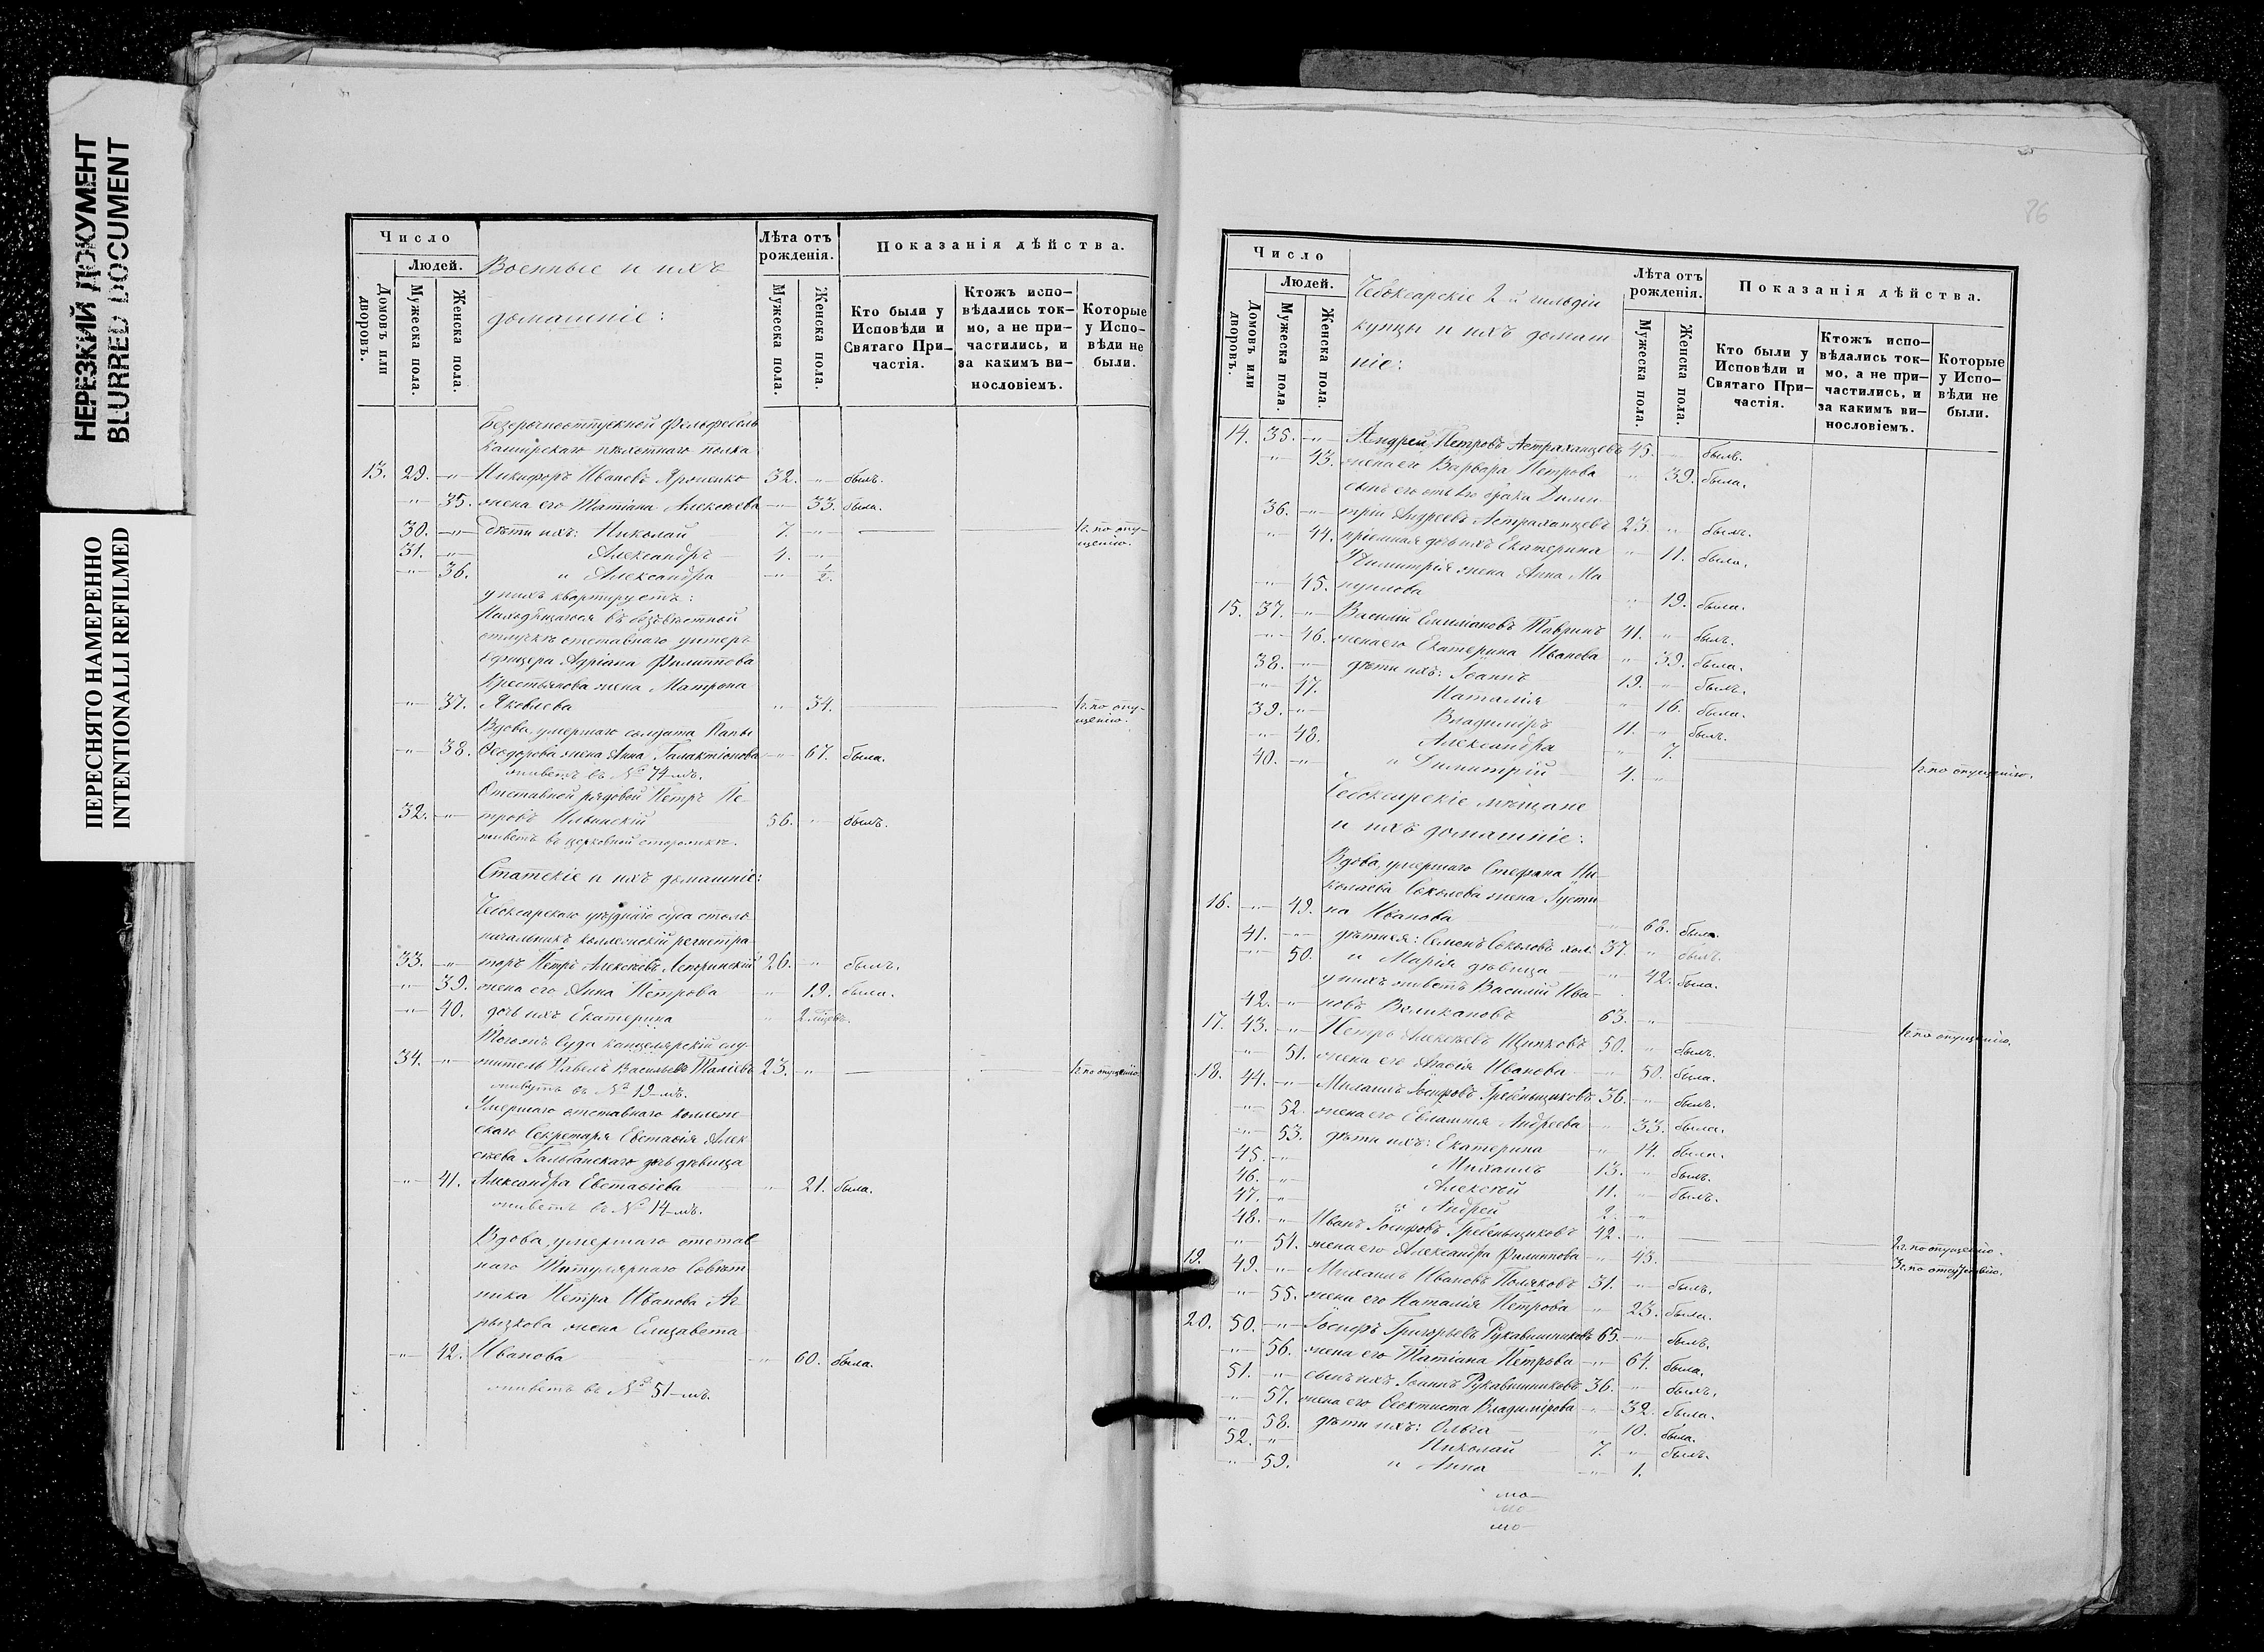 НЕРЕЗКИЙ ДОКУМЕНТ
BLURRED DOCUMENT
ПЕРЕСНЯТО НАМЕРЕННО
INTENTIONALLI REFILMED
Число
Людей.
Домовъ или дворовъ.
Мужеска пола.
Женска пола.
Военные и ихъ
домашніе:
Лѣта отъ рожденія.
Мужеска пола.
Женска пола.
Показанія дѣйства.
Кто были у Исповѣди и Святаго Причастія.
Ктожъ исповѣдались токмо, а не причастились, и за какимъ винословіемъ.
Которые у Исповѣди не были.
Безсрочноотпускной Фельдфебель
Каширскаго пѣхотнаго полка
13. 29. -"- Никифоръ Ивановъ 32. -"- былъ.
-"- 35. жена его Татіана Алексѣева -"- 33. была.
30. -"- дѣти ихъ: Николай 7. -"- 1г. по опущенію.
31. -"- Александръ 4. -"-
-"- 36. и Александра -"- 1/2.
у нихъ квартируетъ:
Находящагося въ безъвѣстной
отлучкѣ отставнаго унтеръ
Офицера Адріана Филиппова
Крестьянова жена Матрона
-"- 37. Яковлева " 34. 1г. по опущенію.
Вдова, умершаго солдата
-"- 38. Ѳеодорова жена Анна Галактіонова -"- 67. была.
живетъ въ № 74-мъ.
Отставной рядовой Петръ Пе-
32. -"- тровъ Ильинскій 56. " былъ.
живетъ въ церковной сторожкѣ.
Статскіе и ихъ домашніе:
Чебоксарскаго уѣзднаго суда столо-
начальникъ коллежскій регистра-
33. -"- торъ Петръ Алексѣевъ 26. " былъ.
-"- 39. жена его Анна Петрова " 19. была.
-"- 40. дочь ихъ Екатерина " 2.
Тогожъ Суда канцелярскій слу-
34. -"- житель Павелъ Васильевъ Таліевъ 23. " 1г. по опущенію.
живутъ въ № 19-мъ.
Умершаго отставнаго коллеж-
скаго Секретаря Евстафія Алек-
сѣева Гальбанскаго дочь дѣвица
-"- 41. Александра Евстафіева " 21. была.
живетъ въ № 14-мъ.
Вдова, умершаго отстав-
наго Титулярнаго Совѣт-
ника Петра Иванова Аг-
рызкова жена Елизавета
-"- 42. Иванова " 60. была.
живетъ въ № 51-мъ.
76
Число
Людей.
Домовъ или дворовъ.
Мужеска пола.
Женска пола.
Чебоксарскіе 2-й гильдіи
купцы и ихъ домаш
ніе:
Лѣта отъ рожденія.
Мужеска пола.
Женска пола.
Показанія дѣйства.
Кто были у Исповѣди и Святаго Причастія.
Ктожъ исповѣдались токмо, а не причастились, и за какимъ винословіемъ.
Которые у Исповѣди не были.
14. 35. -"- Андрей Петровъ Астраханцевъ 45. " былъ.
-"- 43. жена его Варвара Петрова " 39. была.
сынъ его отъ 1го брака Дими-
36. -"- трій Андреевъ Астраханцевъ 23. " былъ.
-"- 44. пріемная дочь ихъ Екатерина " 11. была.
Димитрія жена Анна Ма
-"- 45. нуилова " 19. была.
15. 37. -"- Василій Емиліановъ Тавринъ 41. " былъ.
-"- 46. жена его Екатерина Иванова " 39. была.
38. -"- дѣти ихъ: Іоаннъ 19. " былъ.
-"- 47. Наталія " 16. была.
39. -"- Владиміръ 11. " былъ.
-"- 48. Александра " 7.
40. -"- и Димитрій 4. " 1г. по опущенію.
Чебоксарскіе мѣщане
и ихъ домашніе:
Вдова, умершаго Стефана Ни-
колаева Соколова жена Густи-
16. -"- 49. на Иванова " 68. была.
41. -"- дѣти ея: Семенъ Соколовъ хол. 37. " былъ.
-"- 50. и Марія дѣвица " 42. была.
у нихъ живетъ Василій Ива-
42. -"- новъ Великановъ 63. " 1г. по опущенію.
17. 43. -"- Петръ Алексѣевъ Щипковъ 50. " былъ.
-"- 51. жена его Иванова " 50. была.
18. 44. -"- Михаилъ Іосифовъ Гребенщиковъ 36. -"- былъ.
-"- 52. жена его Евлампія Андреева " 33. была.
-"- 53. дѣти ихъ: Екатерина " 14. была.
45. -"- Михаилъ 13. " былъ.
46. -"- Алексѣй 11. " былъ.
47. -"- и Андрей 2. "
48. -"- Иванъ Іосифовъ Гребенщиковъ 42. " 2г. по опущенію.
-"- 54. жена его Александра Филиппова " 43. 3г. по отсутствію.
19. 49. -"- Михаилъ Ивановъ Поляковъ 31. " былъ.
-"- 55. жена его Наталія Петрова " 23. была.
20. 50. -"- Іосифъ Григорьевъ Рукавишниковъ 65. -"- былъ.
-"- 56. жена его Татіана Петрова -"- 64. была.
51. -"- сынъ ихъ Іоаннъ Рукавишниковъ 36. -"- былъ.
-"- 57. жена его Ѳеоктиста Владимірова " 32. была.
-"- 58. дѣти ихъ: Ольга " 10. была.
52. -"- Николай 7. " былъ.
-"- 59. и Анна -"- 1.